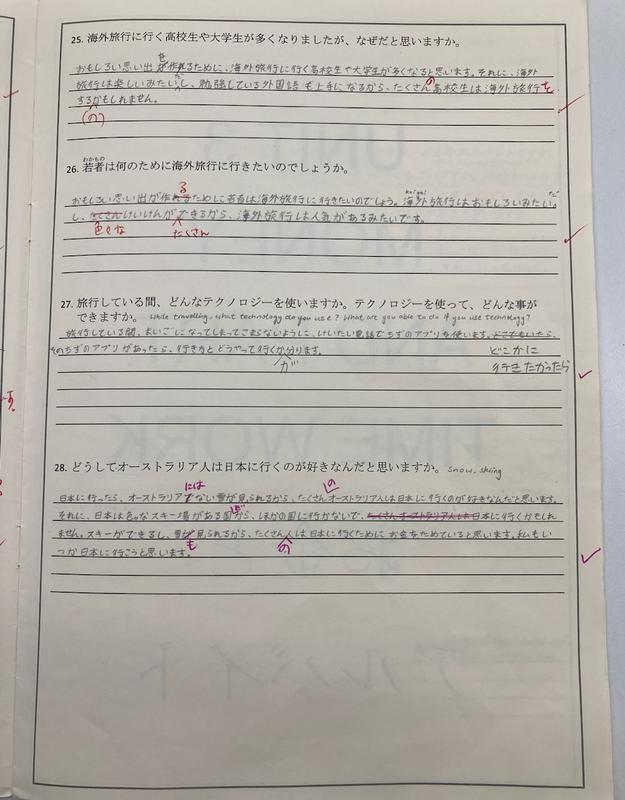 25. 海外旅行に行く高校生や大学生が多くなりましたが、なぜだと思いますか。
を
おもしろい思い出が作れるために、海外旅行に行く高校生や大学生が多くなると思います。それに、海外
旅行は楽しいみたいだし、勉強している外国語も上手になるから、たくさんの高校生は海外旅行を
するかもしれません。
(の)
わかもの
26. 若者は何のために海外旅行に行きたいのでしょうか。
る
おもしろい思い出が作れるために若者は海外旅行に行きたいのでしょう。海外旅行はおもしろいみたいだ
し、たくさんけいけんができるから、海外旅行は人気があるみたいです。
色々な たくさん
27. 旅行している間、どんなテクノロジーを使いますか。テクノロジーを使って、どんな事が
できますか。 While travelling, what technology do you use? What are you able to do if you use technology?
旅行している間、まいごになってしまってこまらないように、けいたい電話でちずのアプリを使います。どこでもいたら、
そのちずのアプリがあったら、行きかとどうやって行くか分ります。
が
どこかに
行きたかったら
28. どうしてオーストラリア人は日本に行くのが好きなんだと思いますか。 snow, skiing
には の
日本に行ったら、オーストラリアでない雪が見られるから、たくさんオーストラリア人は日本に行くのが好きなんだと思います。
それに、日本は色々なスキー場がある国だから、ほかの国に行かないで、たくさんオーストラリア人は日本に行くかもしれ
ません。スキーができるし、雪が見られるから、たくさん人は日本に行くためにお金をためていると思います。私もい
も の
つか日本に行こうと思います。